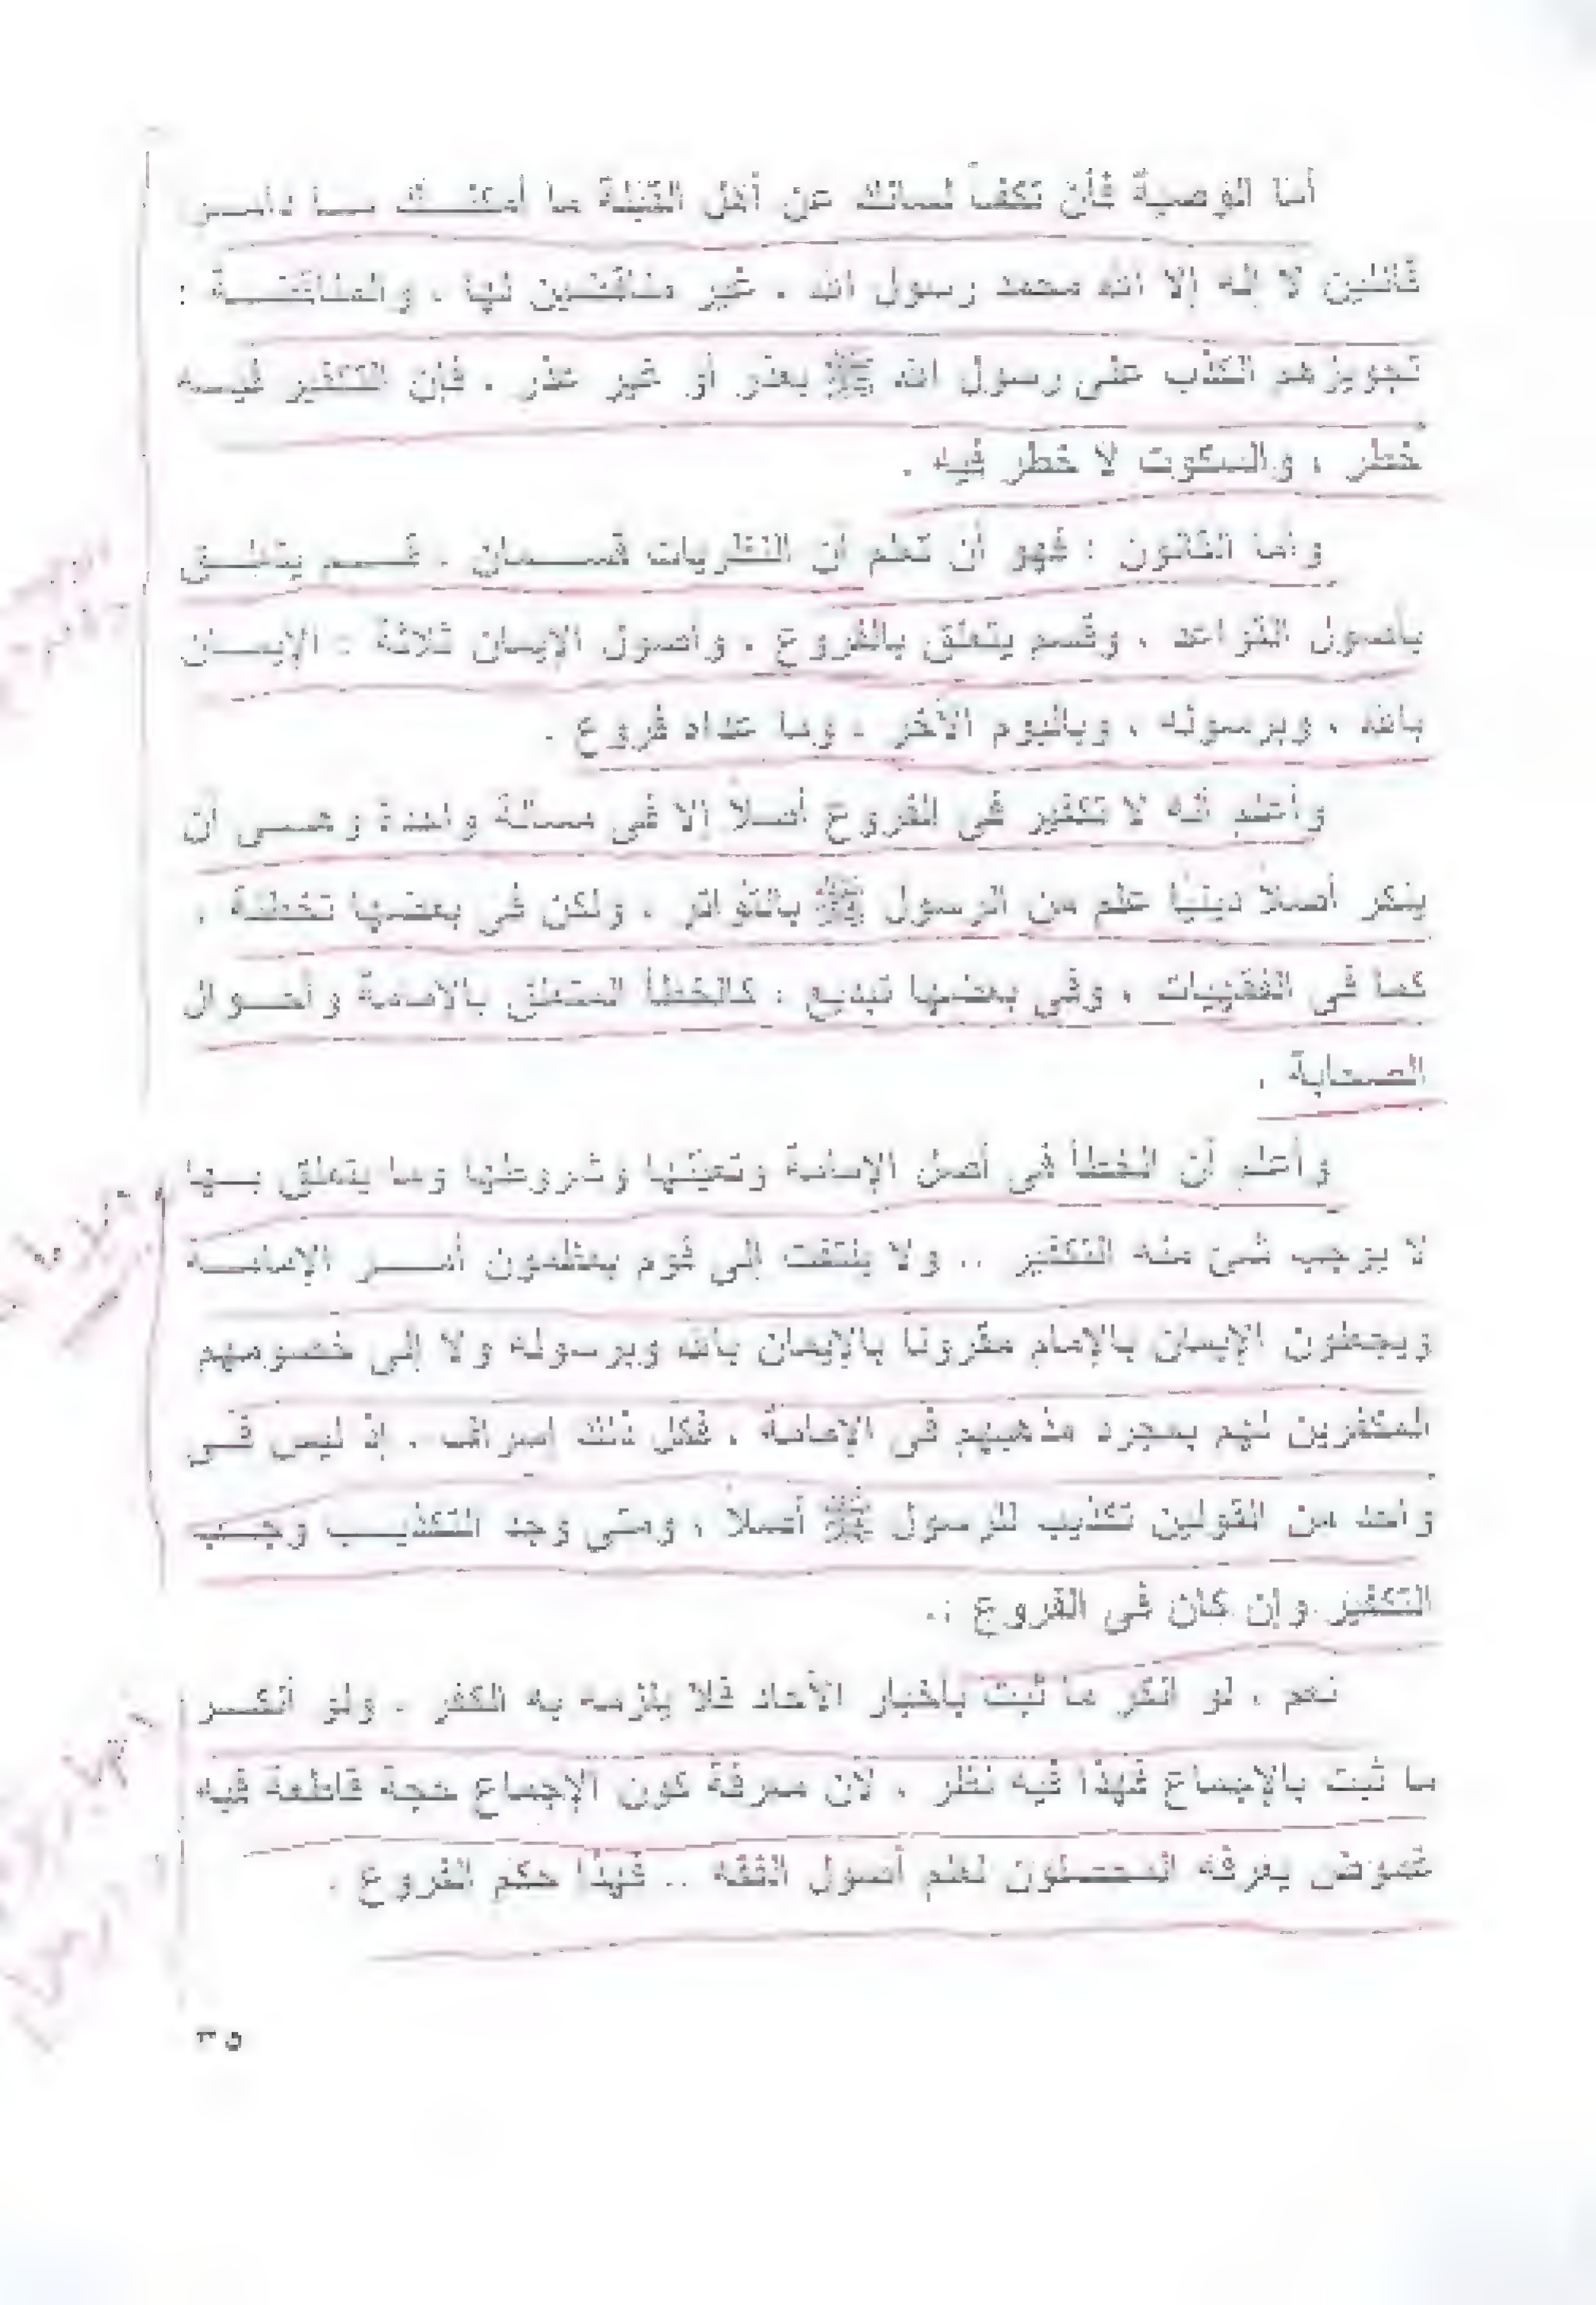 أما الوصية فأن تكف لسانك عن أهل القبلة ما أمكنـــك مـــا دامـــوا
قائلين لا إله إلا الله محمد رسول الله ، غير مناقضين لها ، والمناقضـــة :
تجويزهم الكذب على رسول الله ﷺ بعذر أو غير عذر ، فإن التكفير فيـــه
خطر ، والسكوت لا خطر فيه .
وأما القانون : فهو أن تعلم أن النظريات قســـمان ، قســـم يتعلـــق
بأصول القواعد ، وقسم يتعلق بالفروع ، وأصول الإيمان ثلاثة : الإيمـــان
بالله ، وبرسوله ، وباليوم الآخر ، وما عداه فروع .
وأعلم أنه لا تكفير فى الفروع أصلاً إلا فى مسألة واحدة وهـــى أن
ينكر أصلاً دينيًا علم من الرسول ﷺ بالتواتر ، ولكن فى بعضها تخطئة ،
كما فى الفقهيات ، وفى بعضها تبديع ، كالخطأ المتعلق بالإمامة وأحـــوال
الصحابة .
وأعلم أن الخطأ فى أصل الإمامة وتعينها وشروطها وما يتعلق بـــها
لا يوجب شئ منه التكفير .. ولا يلتفت إلى قوم يعظمون أمـــر الإمامـــة
ويجعلون الإيمان بالإمام مقرونا بالإيمان بالله وبرسوله ولا إلى خصومهم
المكفرين لهم بمجرد مذهبهم فى الإمامة ، فكل ذلك إسراف ، إذ ليس فـــى
واحد من القولين تكذيب للرسول ﷺ أصلاً ، ومتى وجد التكذيـــب وجـــب
التكفير وإن كان فى الفروع ..
نعم ، لو أنكر ما ثبت بأخبار الآحاد فلا يلزمه به الكفر ، ولو أنكـــر
ما ثبت بالإجماع فهذا فيه نظر ، لأن معرفة كون الإجماع حجة قاطعة فيه
غموض يعرفه المحصلون لعلم أصول الفقه .. فهذا حكم الفروع .
٣٥